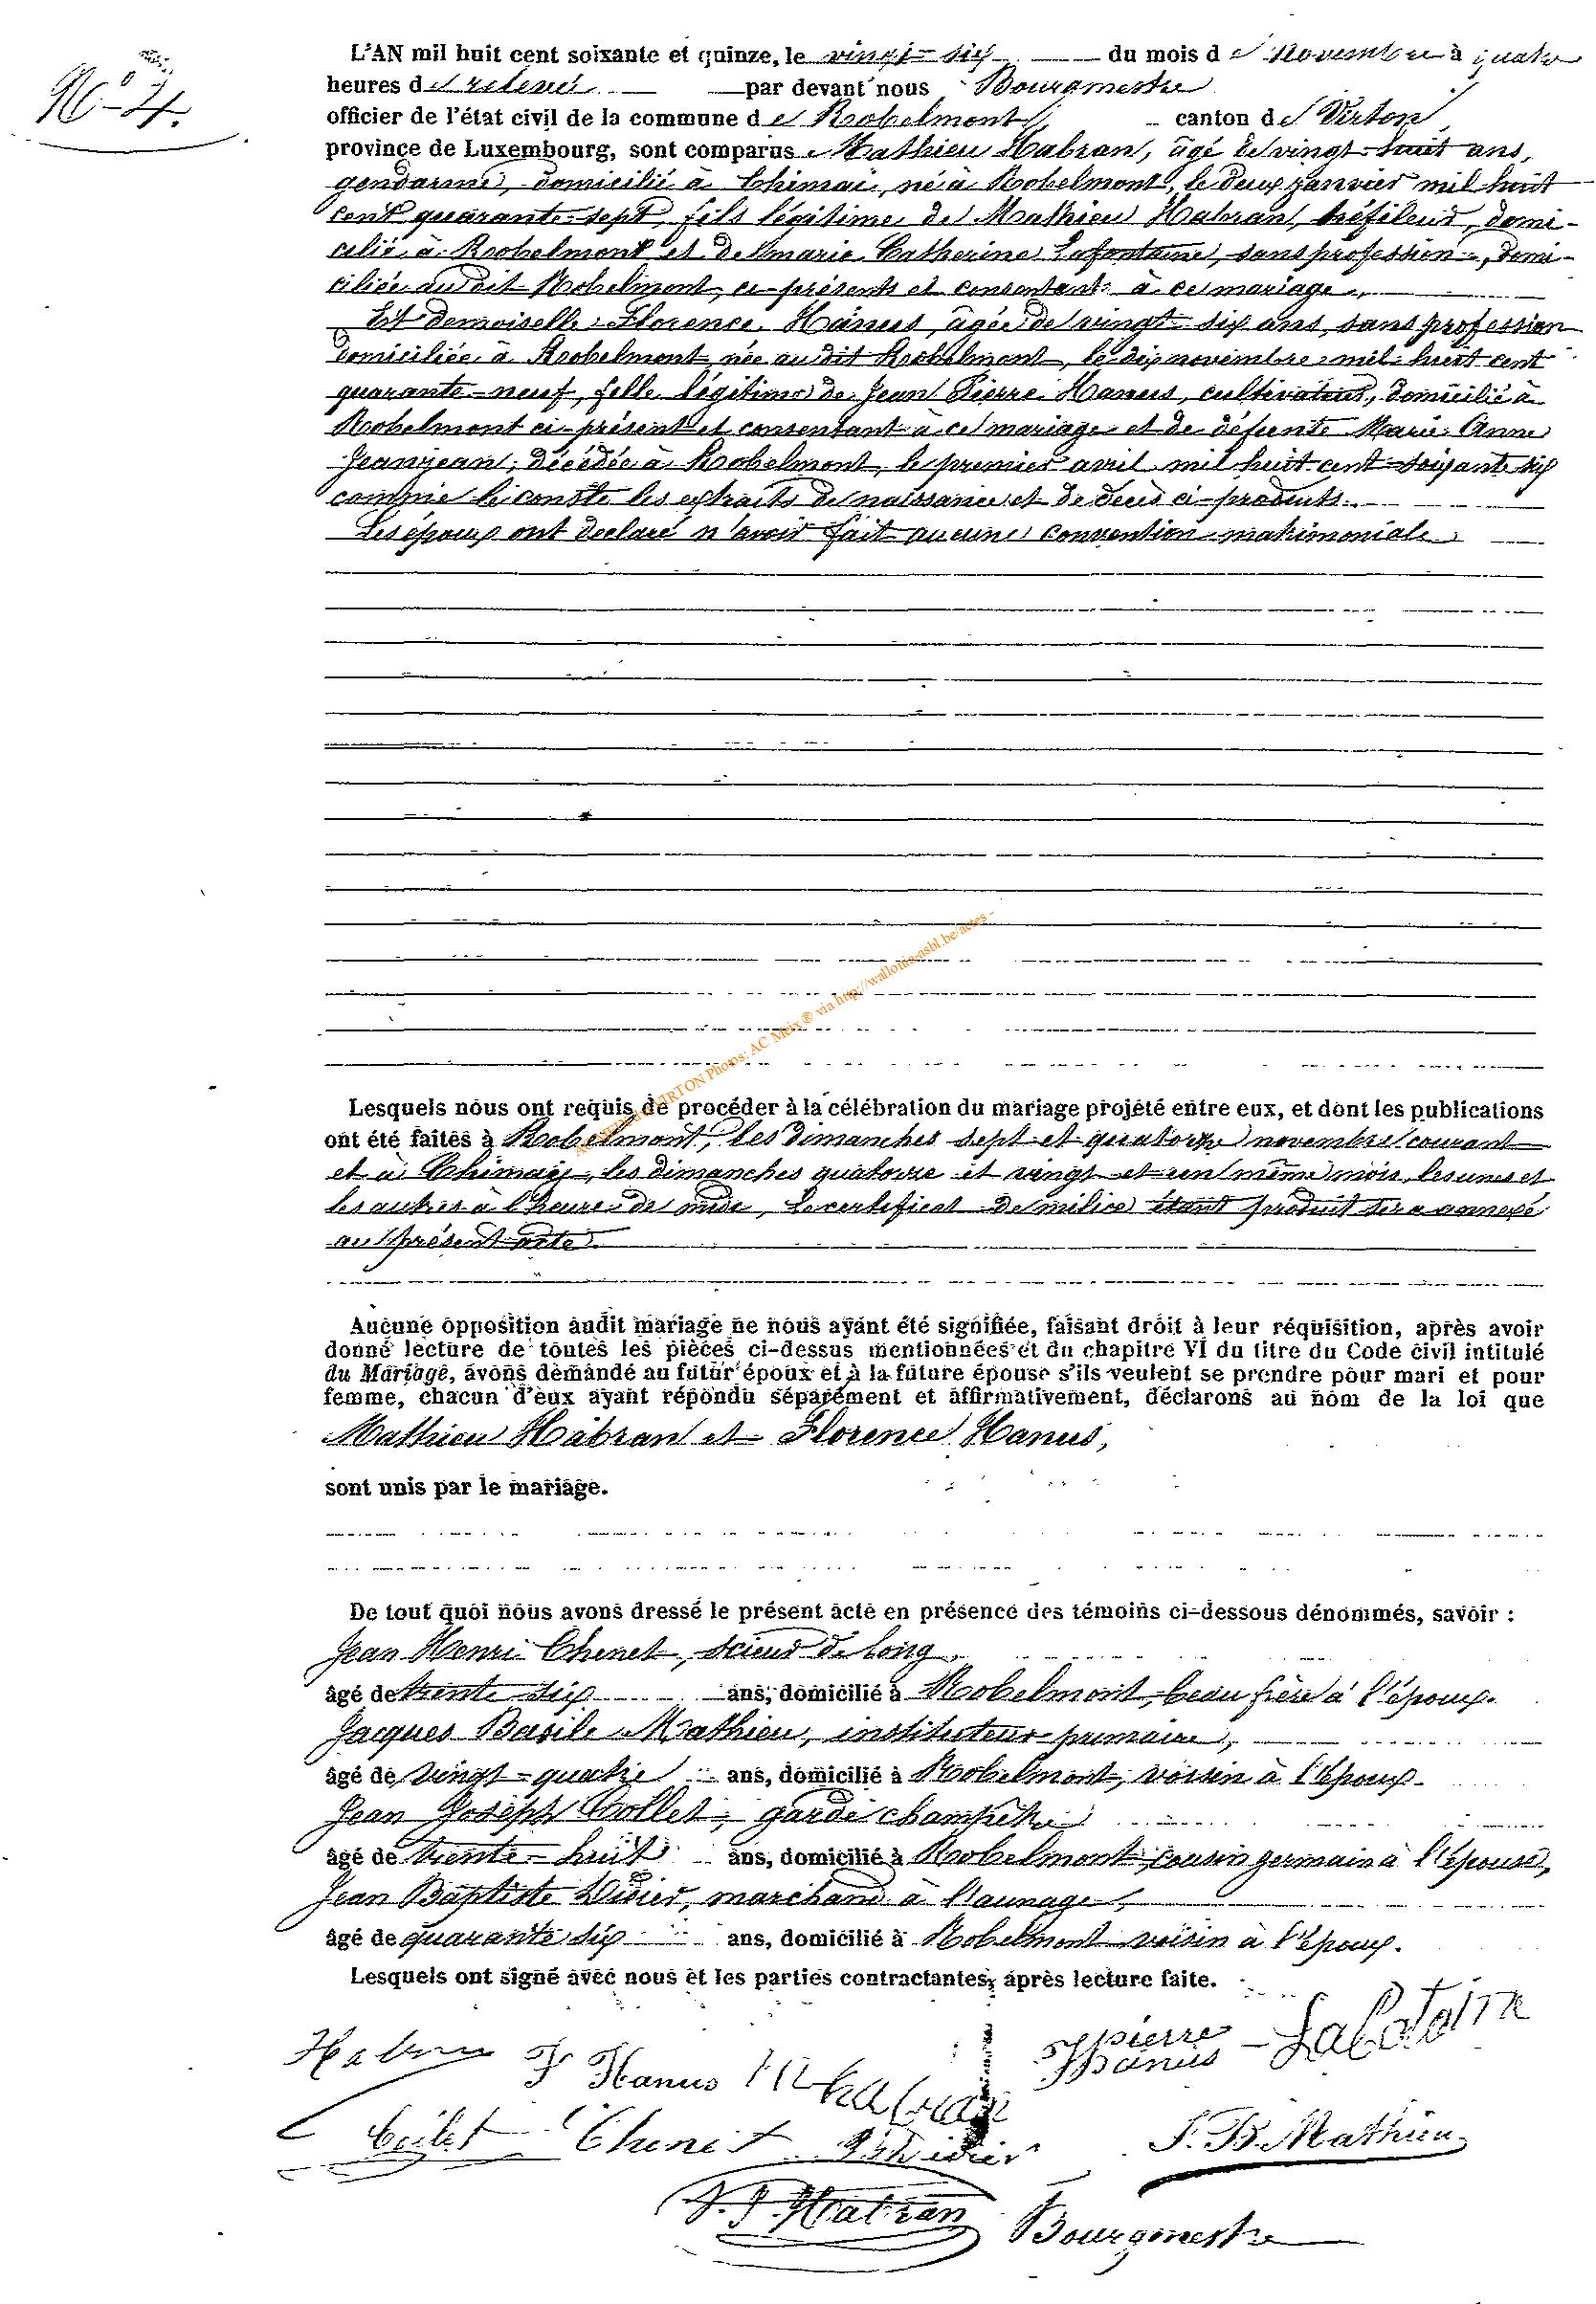 N° 4.
L'AN mil huit cent soixante et quinze, le vingt-six du mois de Novembre à quatre
heures de relevé par devant nous Bourgmestre
officier de l'état civil de la commune de Robelmont canton de Virton
province de Luxembourg, sont comparus Mathieu Habran, âgé de vingt-huit ans,
gendarme, domicilié à Chimai, né à Robelmont, le deux janvier mil huit
cent quarante-sept, fils légitime de Mathieu Habran, tréfileur, domi-
cilié à Robelmont et de marie Catherine Lafontaine, sans profession, domi-
ciliée au dit Robelmont, ci-présents et consentant à ce mariage.
Et demoiselle Florence Hanus, âgée de vingt-six ans, sans profession
domiciliée à Robelmont, née au dit Robelmont, le dix novembre mil huit cent
quarante-neuf, fille légitime de Jean Pierre Hanus, cultivateur, domicilié à
Robelmont ci-présent et consentant à ce mariage et de défunte Marie Anne
Jeanjean, décédée à Robelmont, le premier avril mil huit cent soixante six
comme le conste les extraits de naissance et de décès ci-produits.
Les époux ont declaré n'avoir fait aucune convention matrimoniale
AC Meix VIRTON Photos: AC Meix ® via http://wallonia-asbl.be/actes -
Lesquels nous ont requis de procéder à la célébration du mariage projeté entre eux, et dont les publications
ont été faites à Robelmont, les dimanches sept et quatorze novembre courant
et à Chimay, les dimanches quatorze et vingt et un même mois, les unes et
les autres à l'heure de midi, le certificat de milice étant produit sera annexé
au présent acte.
Aucune opposition audit mariage ne nous ayant été signifiée, faisant droit à leur réquisition, après avoir
donné lecture de toutes les pièces ci-dessus mentionnées et du chapitre VI du titre du Code civil intitulé
du Mariage, avons demandé au futur époux et à la future épouse s'ils veulent se prendre pour mari et pour
femme, chacun d'eux ayant répondu séparément et affirmativement, déclarons au nom de la loi que
Mathieu Habran et Florence Hanus,
sont unis par le mariage.
De tout quoi nous avons dressé le présent acte en présence des témoins ci-dessous dénommés, savoir :
Jean Henri Chenet, scieur de long,
âgé de trente-six ans, domicilié à Robelmont, beau frère à l'époux.
Jacques Basile Mathieu, instituteur primaire,
âgé de vingt-quatre ans, domicilié à Robelmont, voisin à l'époux.
Jean Joseph Collet, garde champêtre
âgé de trente-huit ans, domicilié à Robelmont, cousin germain à l'épouse,
Jean Baptiste Didier, marchand à l'aunage,
âgé de quarante six ans, domicilié à Robelmont voisin à l'époux.
Lesquels ont signé avec nous et les parties contractantes, après lecture faite.
Habran F Hanus M habran pierre Hanus - Lafotaine
Collet Chenet Didier J. B. Mathieu
J. J. Habran Bourgmestre